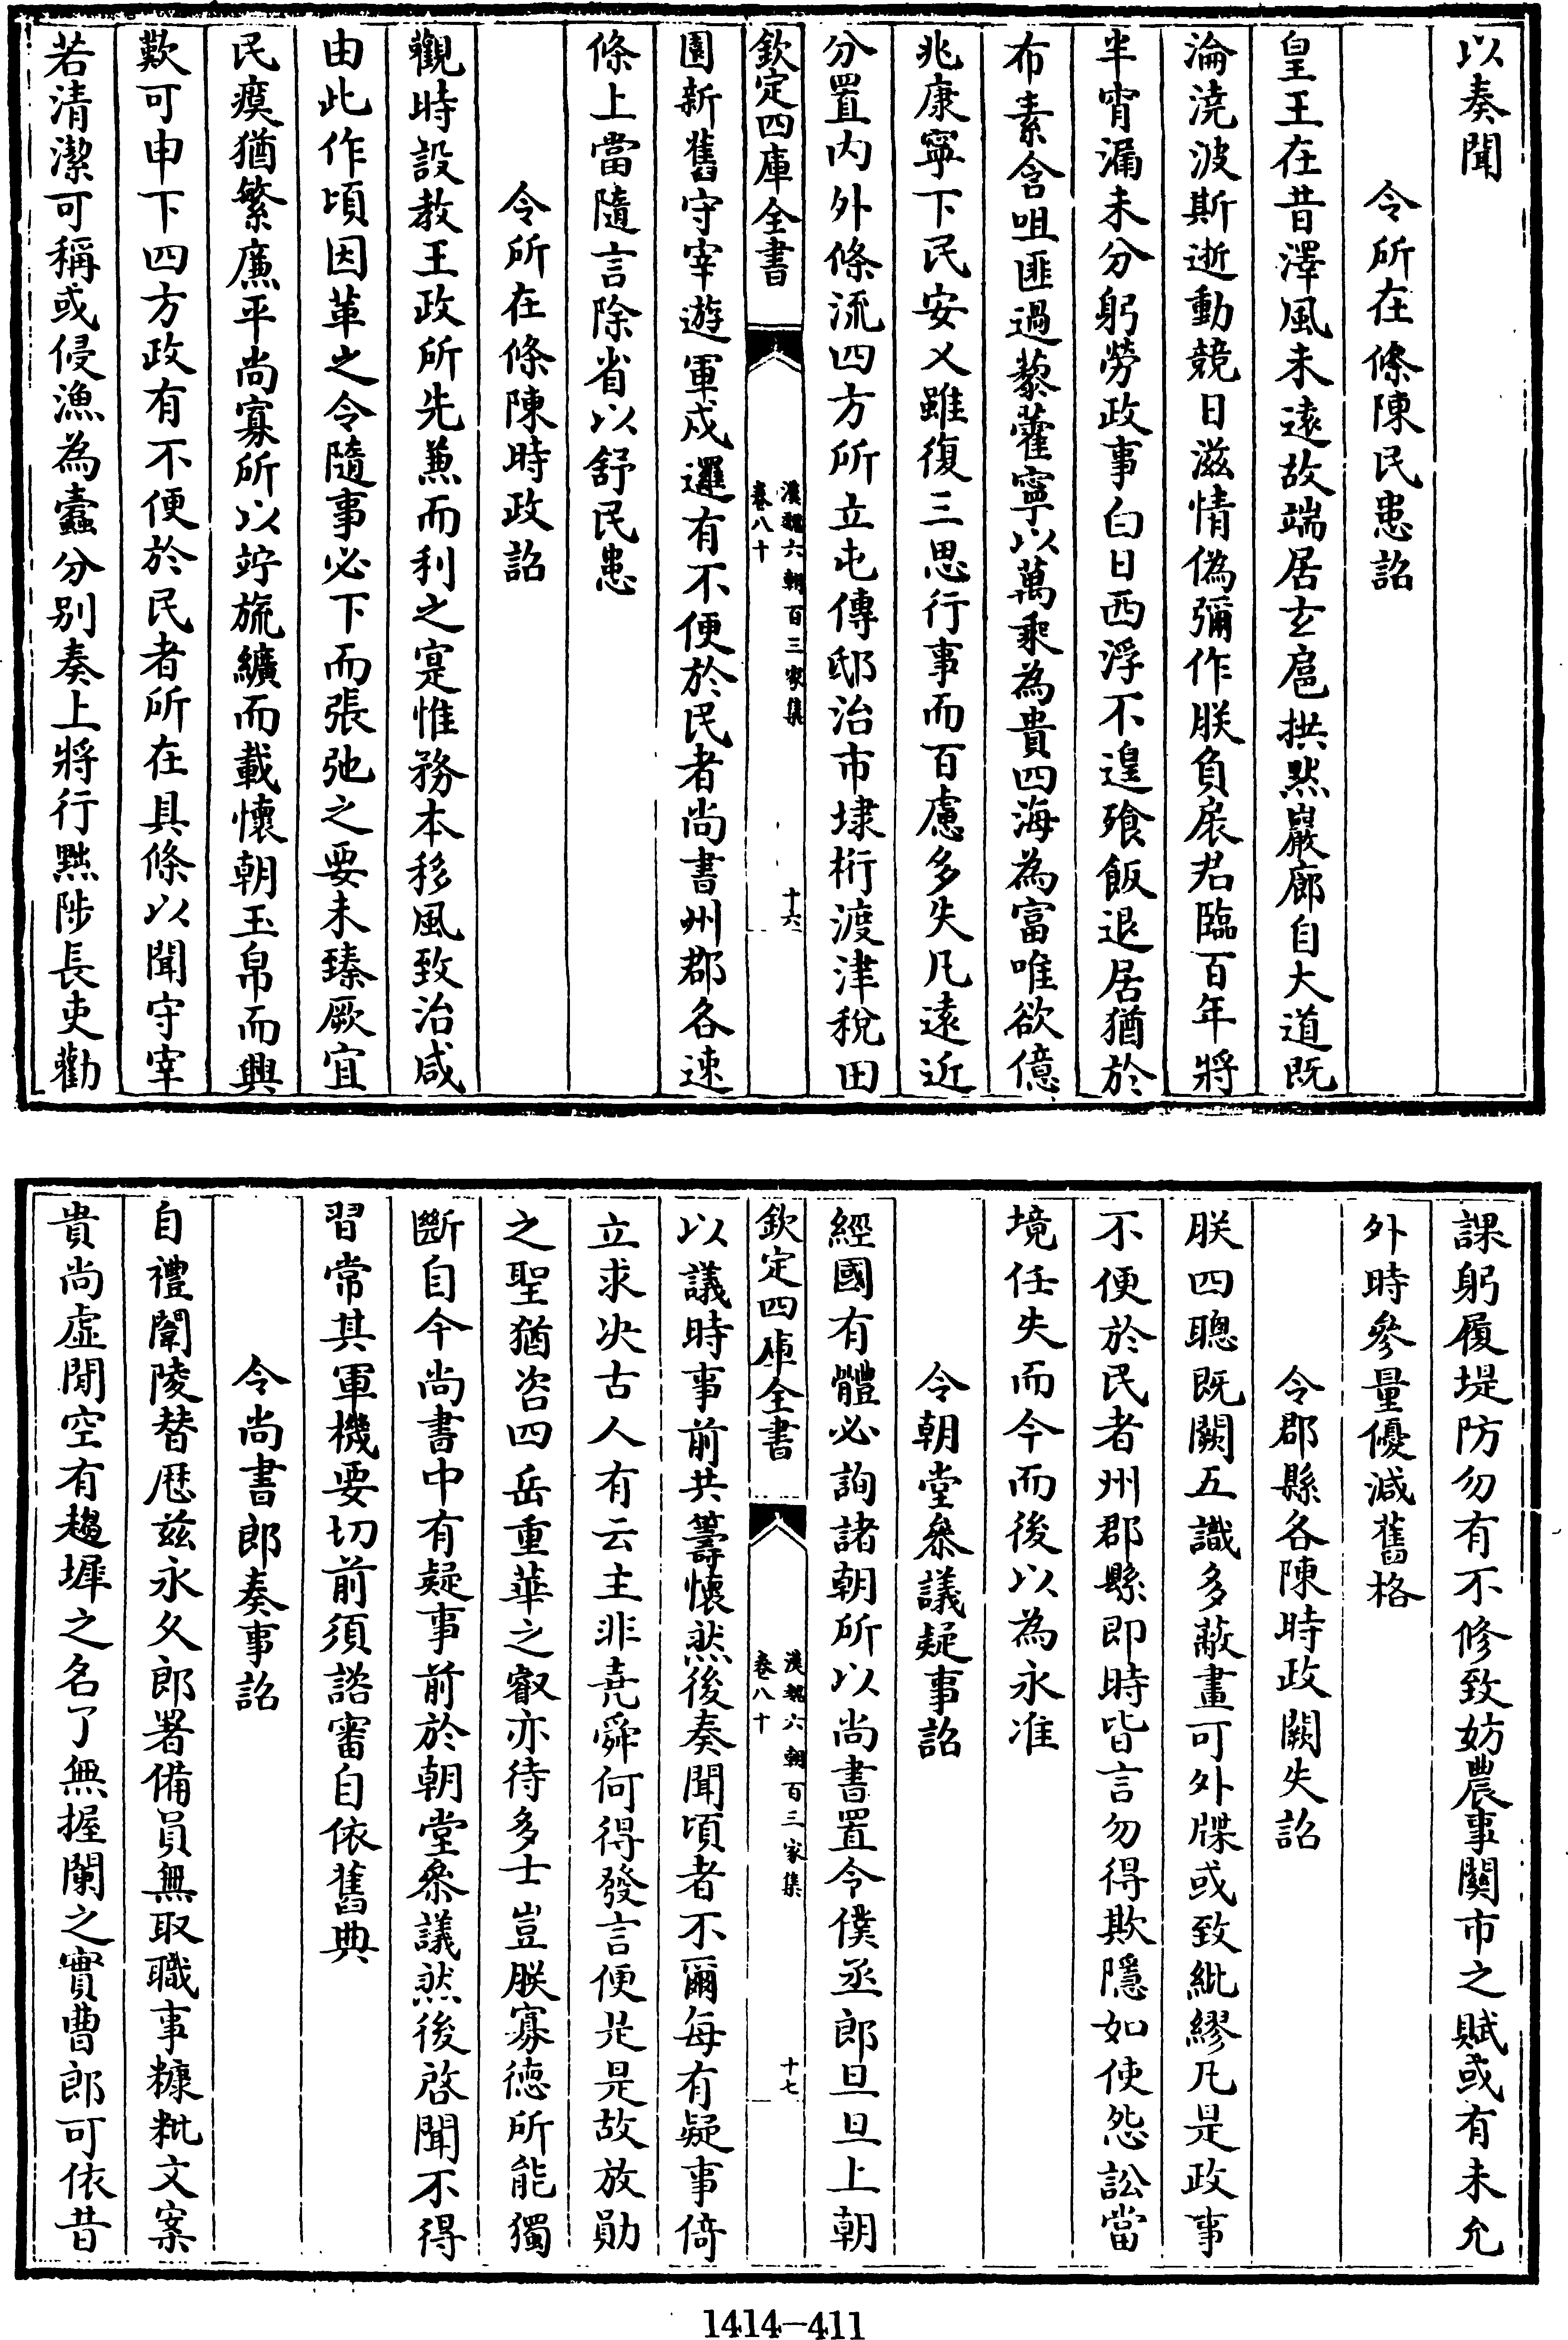 以奏聞
令所在條陳民患詔
皇王在昔澤風未遠故端居玄扈拱黙巖廊自大道既
淪澆波斯逝動競日滋情偽彌作朕負扆君臨百年將
半宵漏未分躬勞政事白日西浮不遑飱飯退居猶於
布素含咀匪過藜藿寧以萬乘為貴四海為富唯欲億
兆康寧下民安乂雖復三思行事而百慮多失凡遠近
分置内外條流四方所立屯傳邸治市埭桁渡津稅田
欽定四庫全書
漢魏六朝百三家集
卷八十
十六
園新舊守宰遊軍戍邏有不便於民者尚書州郡各速
條上當隨言除省以舒民患
令所在條陳時政詔
觀時設教王政所先兼而利之寔惟務本移風致治咸
由此作頃因革之令隨事必下而張弛之要未臻厥宜
民瘼猶繁廉平尚寡所以竚旒纊而載懷朝玉帛而興
歎可申下四方政有不便於民者所在具條以聞守宰
若清潔可稱或侵漁為蠹分别奏上將行黜陟長吏勸
課躬履堤防勿有不修致妨農事關市之賦或有未允
外時參量優減舊格
令郡縣各陳時政闕失詔
朕四聰既闕五識多蔽畫可外牒或致紕繆凡是政事
不便於民者州郡縣即時皆言勿得欺隱如使怨訟當
境任失而今而後以為永准
令朝堂叅議疑事詔
經國有體必詢諸朝所以尚書置令僕丞郎旦旦上朝
欽定四庫全書
漢魏六朝百三家集
卷八十
十七
以議時事前共籌懷然後奏聞頃者不爾每有疑事倚
立求决古人有云主非堯舜何得發言便是是故放勛
之聖猶咨四岳重華之叡亦待多士豈朕寡徳所能獨
斷自今尚書中有疑事前於朝堂叅議然後啓聞不得
習常其軍機要切前須諮審自依舊典
令尚書郎奏事詔
自禮闈陵替厯兹永久郎署備員無取職事糠粃文案
貴尚虛閒空有趨墀之名了無握蘭之實曹郎可依昔
1414-411